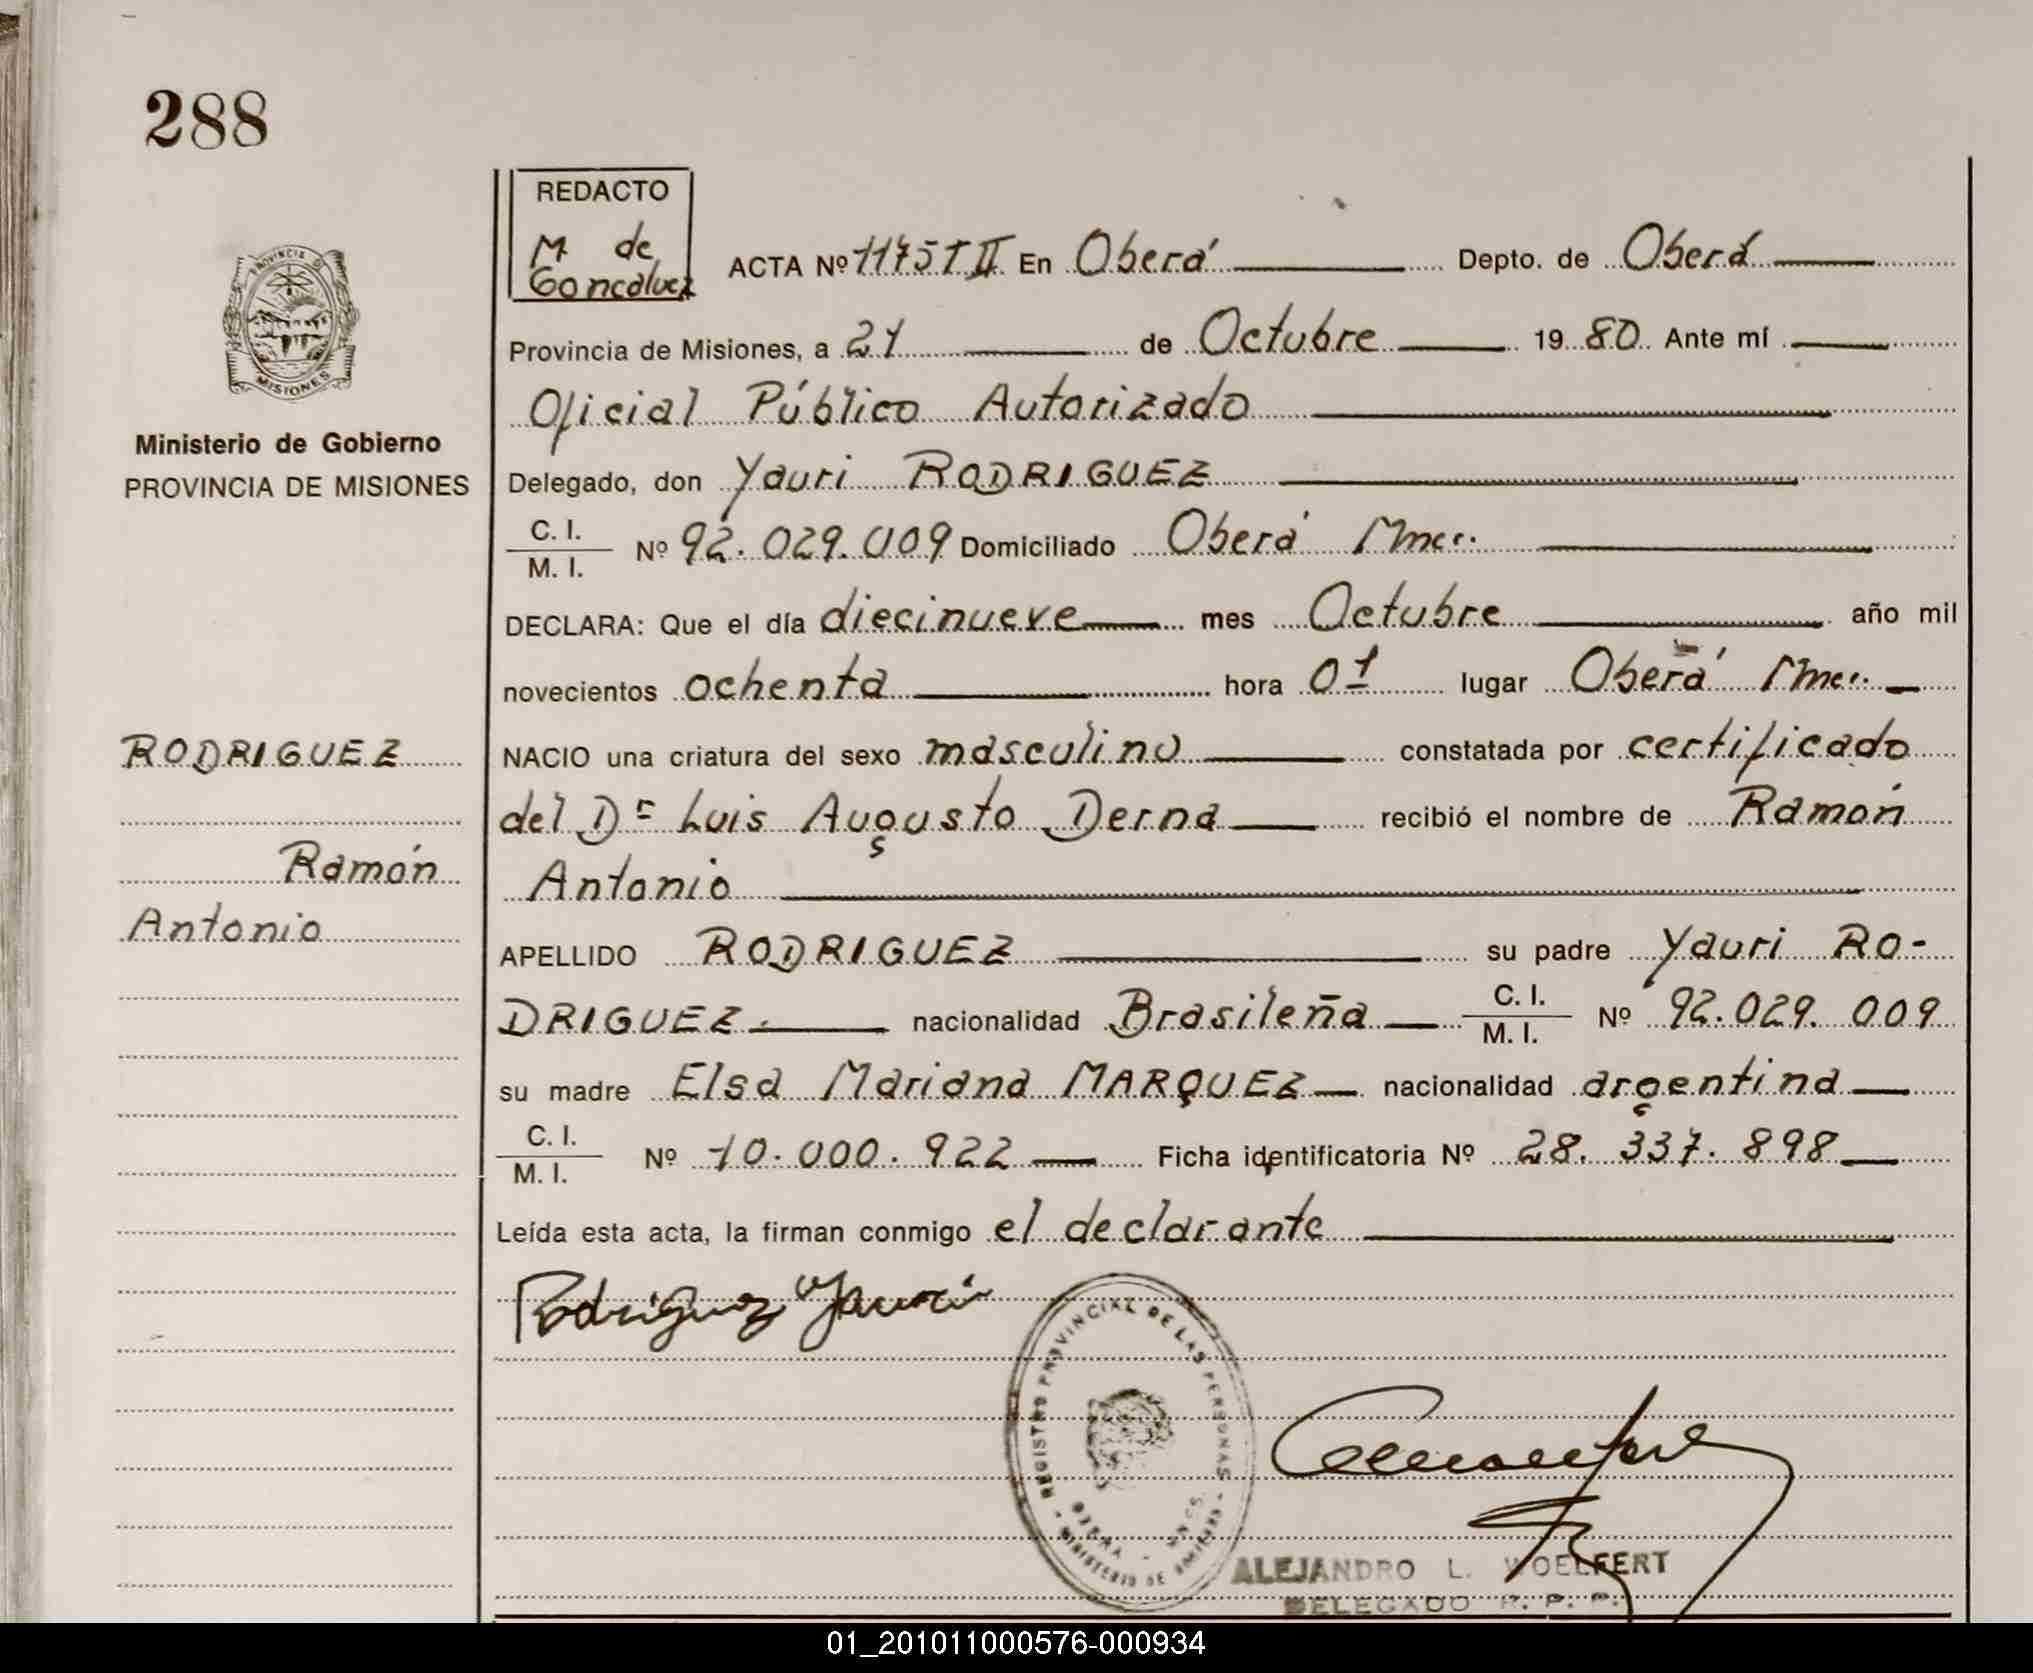 288
PROVINCIA D
MISIONES
Ministerio de Gobierno
PROVINCIA DE MISIONES
RODRIGUEZ
Ramón
Antonio
REDACTO
M de
Goncalvez
ACTA Nº 1175 T II En Oberá Depto. de Oberá
Provincia de Misiones, a 21 de Octubre 1980. Ante mí
Oficial Público Autorizado
Delegado, don Yauri RODRIGUEZ
C. I.
M. I. Nº 92.029.009 Domiciliado Oberá Mnes.
DECLARA: Que el día diecinueve mes Octubre año mil
novecientos ochenta hora 01 lugar Oberá Mnes.
NACIO una criatura del sexo masculino constatada por certificado
del Dr Luis Augusto Derna recibió el nombre de Ramón
Antonio
APELLIDO RODRIGUEZ su padre Yauri RO-
DRIGUEZ. nacionalidad Brasileña C. I.
M. I. Nº 92.029.009
su madre Elsa Mariana MARQUEZ nacionalidad argentina
C. I.
M. I. Nº 10.000.922 Ficha identificatoria Nº 28.337.898
Leída esta acta, la firman conmigo el declarante
Rodriguez Yauri
REGISTRO PROVINCIAL DE LAS PERSONAS
OBERA - MNES.
MINISTERIO DE
ALEJANDRO L. WOELFERT
DELEGADO R. P. P.
01_201011000576-000934